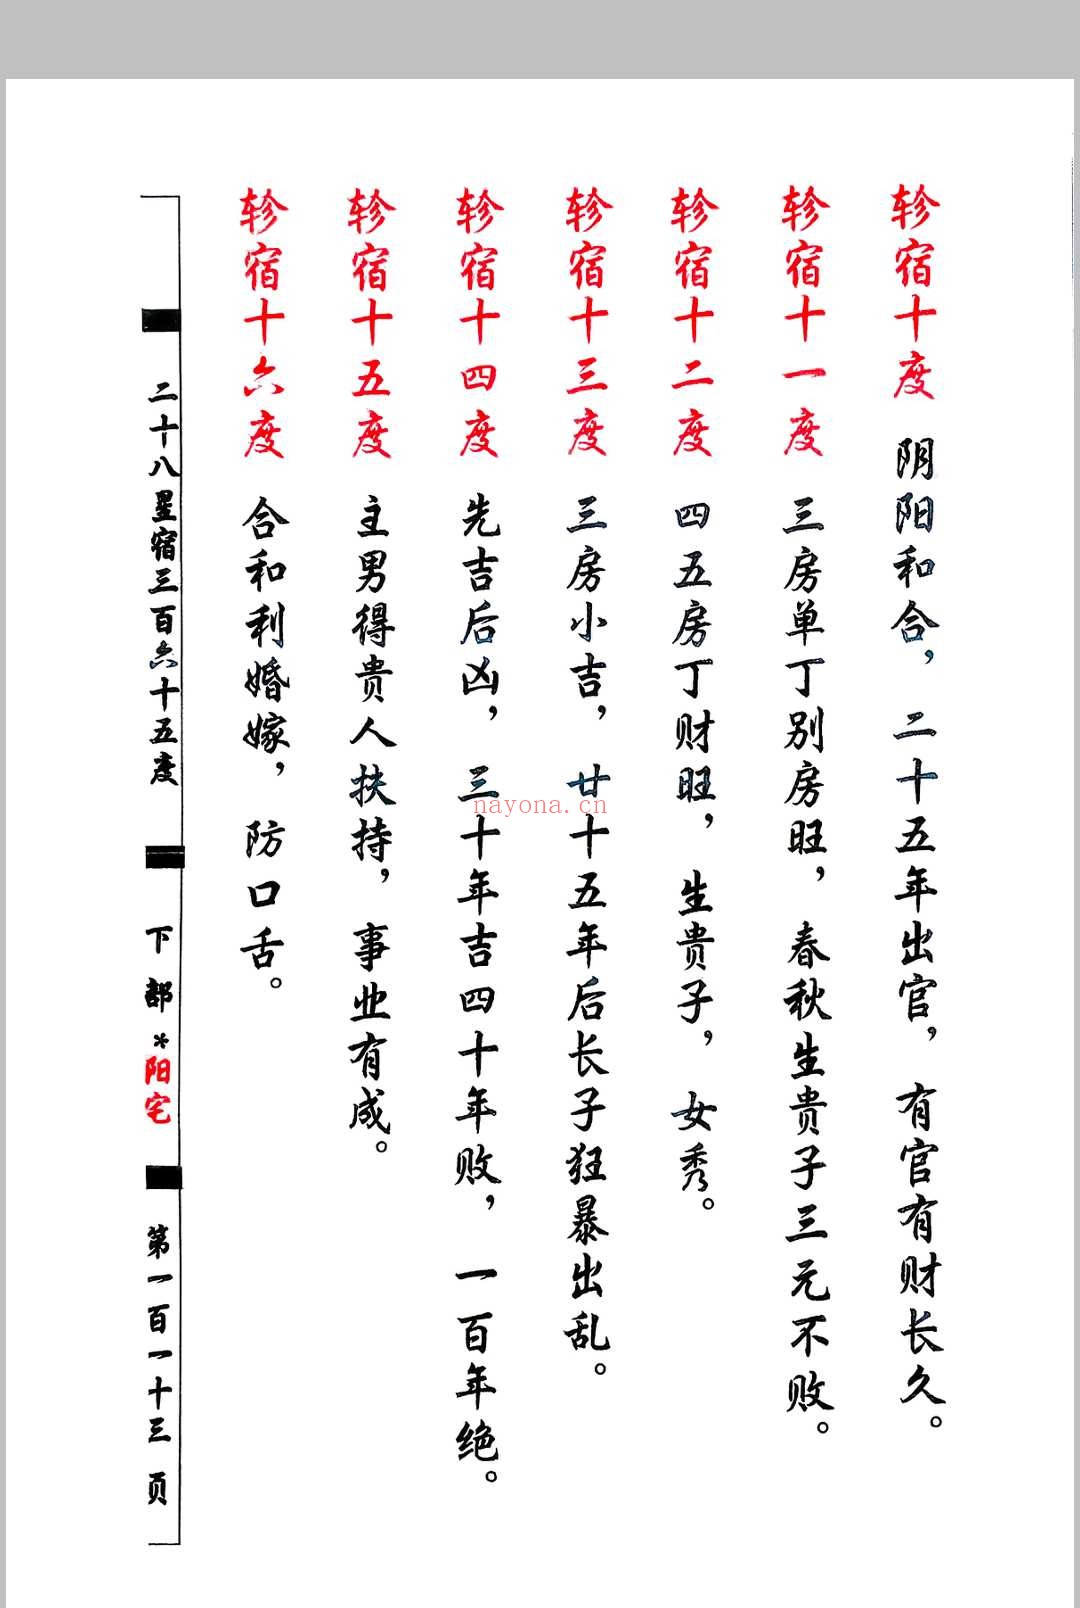 轸宿十度 阴阳和合，二十五年出官，有官有财长久。
轸宿十一度 三房单丁别房旺，春秋生贵子三元不败。
轸宿十二度 四五房丁财旺，生贵子，女秀。
轸宿十三度 三房小吉，廿十五年后长子狂暴出乱。
轸宿十四度 先吉后凶，三十年吉四十年败，一百年绝。
轸宿十五度 主男得贵人扶持，事业有成。
轸宿十六度 合和利婚嫁，防口舌。
二十八星宿三百六十五度 下部*阳宅 第一百一十三页
nayona.cn